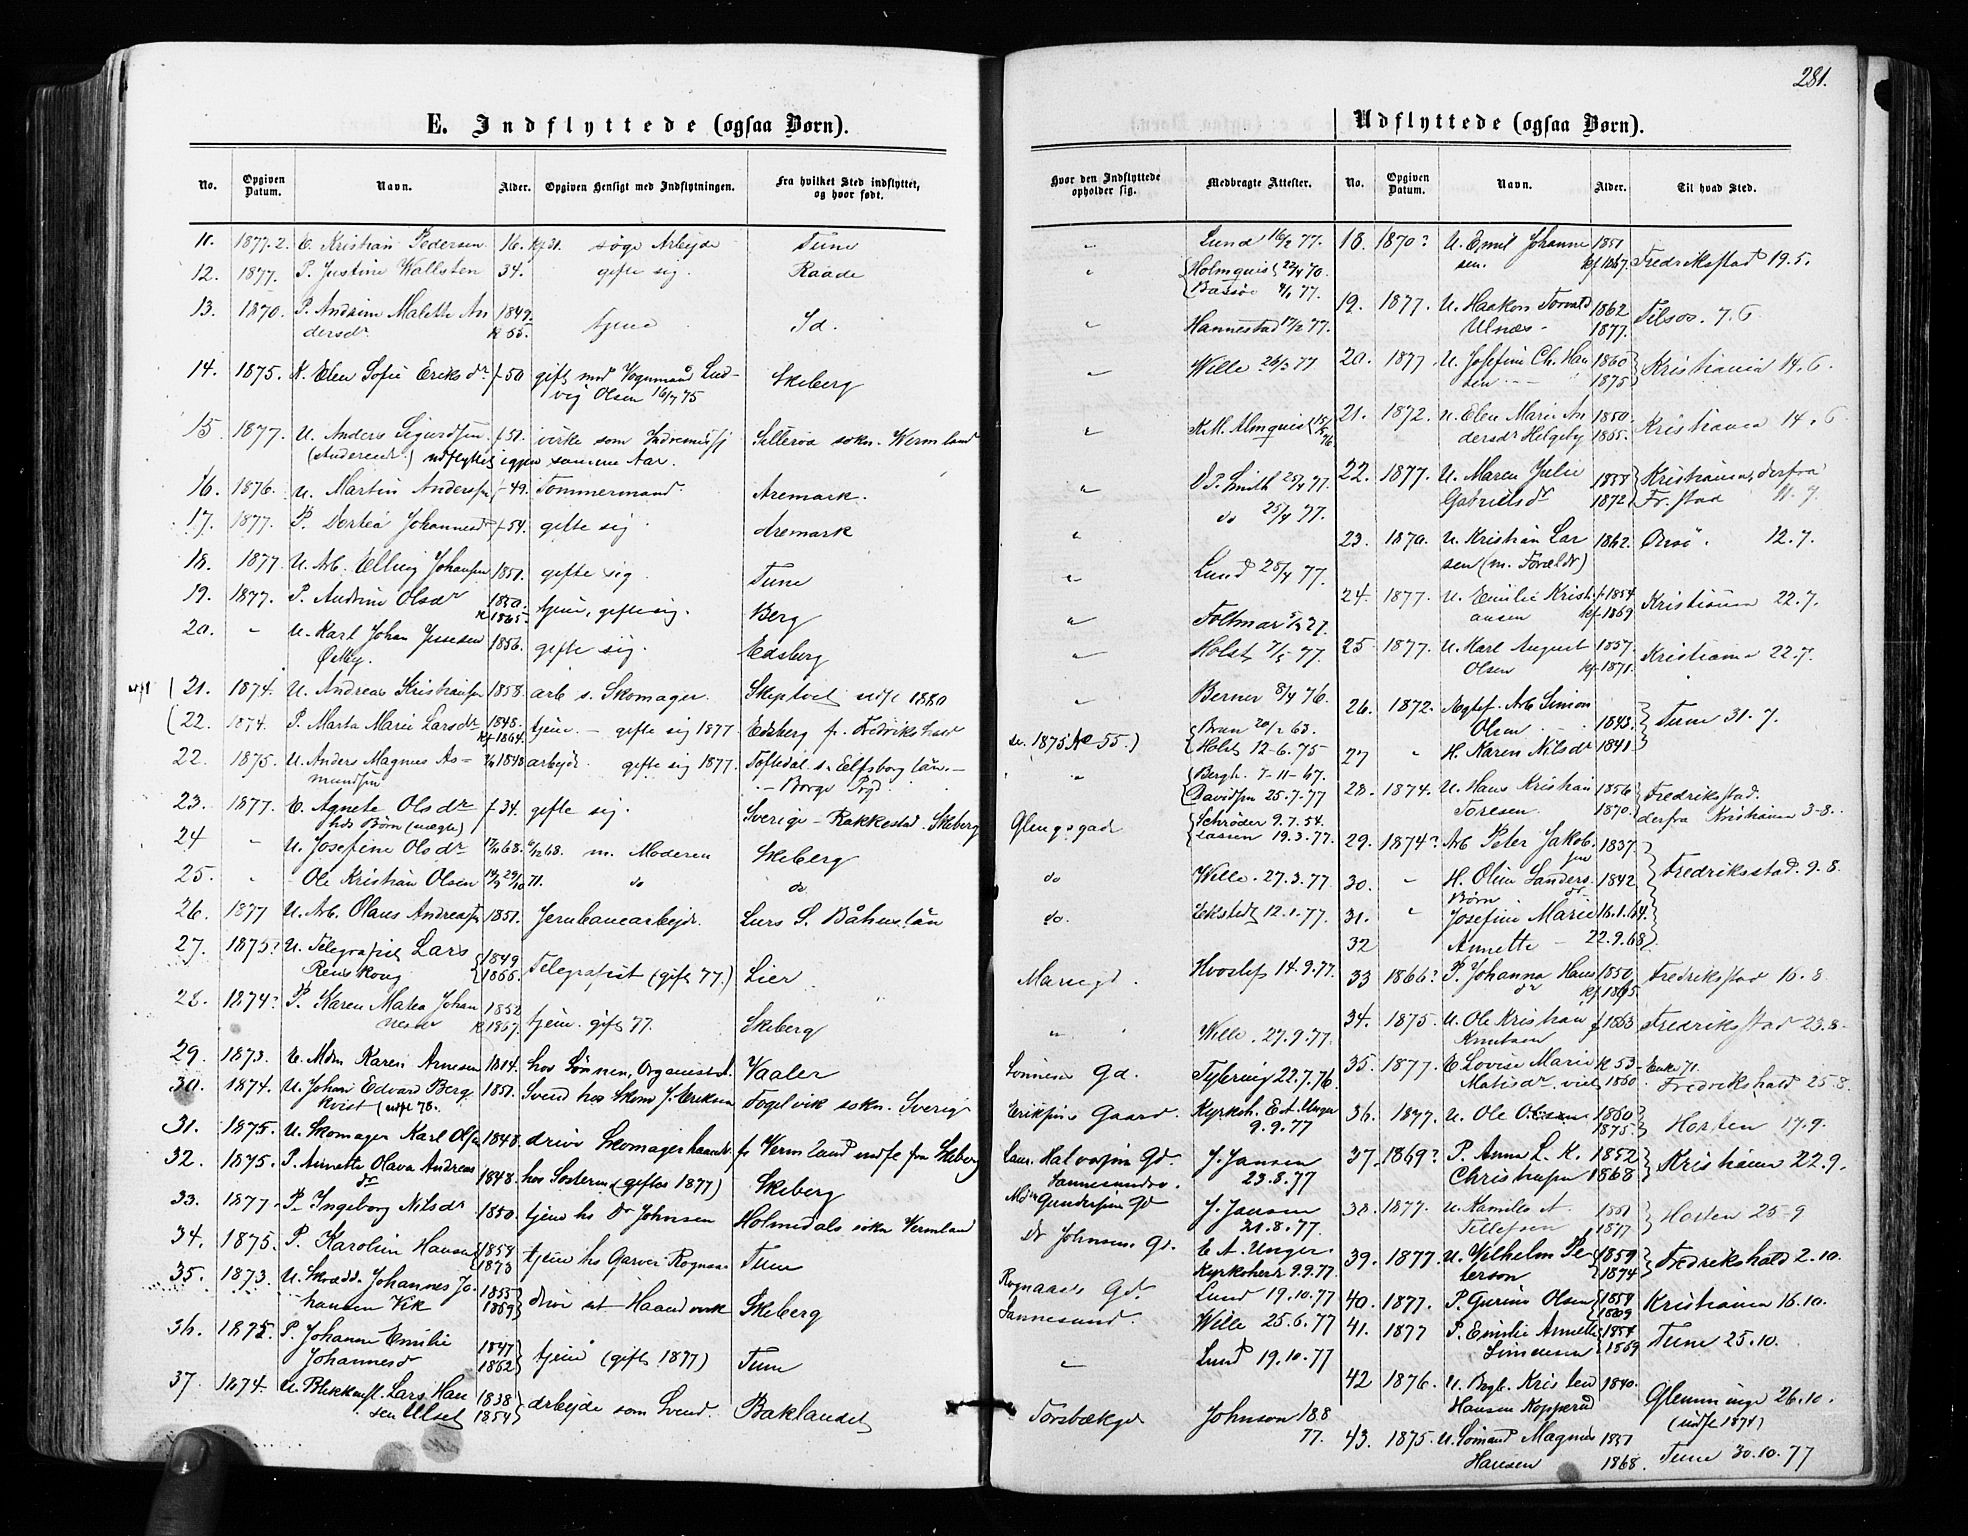 281.
E. Indflyttede (ogsaa Børn).
No. Opgiven Datum. Navn. Alder. Opgiven Hensigt med Indflytningen. Fra hvilket Sted indflyttet, og hvor født.
11. 1877.2. E. Kristian Pedersen 16. søge Arbejde Tune
12. 1877. P. Justine Wallsten 34. gifte sig. Raade
13. 1870. P. Andrine Malette An 1849. tjene Id.
dersdr k 65.
14. 1875. K. Elen Sofie Eriksdr f 50 gift med Vognmand Lud- Skeberg
vig Olsen 16/7 75
15. 1877. U. Anders Sigurdsen f 51. virke som Indremissj Silleröd sokn. Wermland
udflyttet igjen samme Aar.
16. 1876. U. Martin Andersen f 49. Tømmermand Aremark.
17. 1877. P. Dortea Johannesdr f 54. gifte sig. Aremark
18. 1877 U. Arb. Elling Johansen 1851. gifte sig. Tune
19. 1877. P. Andrine Olsdr 1850. tjene, gifte sig. Berg
k 1865.
20. " U. Karl Johan Jensen 1856. gifte sig. Edsberg
Østby.
21. 1874. U. Andreas Kristiansen 1858. arb s. Skomager. Skiptvet udfl 1880
22. 1874. P. Marta Marie Larsdr 1848. tjene. - gifte sig 1877 Edsberg fr. Fredrikshald
kf 1864.
22. 1875. U. Anders Magnus As- 1848 arbejde. gifte sig 1877. Töftedal s. Elfsborg län.
mundsen - Borge Pgd.
23. 1877. E. Agnete Olsdr f 34. gifte sig. Sverige - Rakkestad. Skeberg
hds Børn (uægte)
24 " U. Josefine Olsdr 68. m. Moderen Skeberg
25. " Ole Kristian Olsen 71. do do.
26. 1877 U. Arb. Olaus Andreassen 1851. Jernbanearbejdr. Lurs S. Båhuslän
27. 1875? U. Telegrafist Lars 1849 Telegrafist (gift 77.) Lier
Renskoug 1866.
28. 1874? P. Karen Matea Johan 1852 tjene. gift 77. Skeberg
nesdr k 1867.
29. 1873. E. Mdm Karen Arnesen 1814. hos Sønnen, Organist A. Vaaler
30. 1874. U. Johan Edvard Berg 1851. Svend hos Skom J. Eriksen Fogelvik sokn. Sverige
kvist (udfl 78.
31. 1875. U. Skomager Karl Olsen 1848. drive Skomagerhaandv. fr Vermland indfl fra Skeberg
32. 1875. P. Annette Olava Andreas 1848. hos Søsteren (giftes 1877) Skeberg
dr
33. 1877. P. Ingeborg Nilsdr 1850. tjene hs Dr Johnsen Holmedals sokn Vermland
34. 1875. P. Karoline Hansen 1858 tjene hs Garver Rognaas Tune
1873
35. 1873. U. Skrædd. Johannes Jo 1853 drive sit Haandverk Skeberg
hansen Vik 1869
36. 1875. P. Johanne Emilie 1847 tjene (gift 1877) Tune
Johannesdr 1862
37. 1874. U. Blikkensl. Lars Han 1838 arbejde som Svend. Baklandet
sen Ulset 1854
Hvor den Indflyttede opholder sig. Medbragte Attester.
" Lund 16/2 77.
" Holmquist 22/4 70.
Bassøe 77.
" Hannestad 12/2 77.
" Wille 26/3 77
" K.M. Almquist
" D.P. Smith 25/4 77.
" do 25/4 77.
" Lund 25/4 77.
" Foltmar 77.
" Holst 7/5 77.
" Berner 8/4 76.
se 1875 No 55.) Brun 20/1 63.
Holst 12-6.75
" Bergh. 7-11-67.
Davidsen 25.7.77
Glengsgad Schrøder 9.7.54.
Lassen 19.3.77.
do Wille. 27.3.77
do. Ekstedt 12.1.77.
Mariegd. Hvoslef 14.9.77.
" Wille. 27.9.77.
Sønnens Gd. Tybring 22.7.76.
Eriksens Gaard. Kyrkoh. E.A. Unger
9.9.77
Laur. Halvorsen Gd. J. Jansen
Sannesundsv. 23.8.77
Mdm Gundersen Gd J. Jansen
21.8.77
Dr Johnsens Gd. E.A. Unger
Kyrkoherde 9.9.77.
Rognaas's Gd. Lund 19.10.77
Sannesund. Wille 25.6.77
" Lund 19.10.77
Torsbækgd Johnson 18.8
77.
Udflyttede (ogsaa Børn).
No. Opgiven Datum. Navn. Alder. Til hvad Sted.
18. 1870? U. Emil Johanne 1851 Fredriksstad 19.5.
sen. kf 1867.
19. 1877. U. Haakon Torvald 1862 Tilsos. 7.6
Ulnæs- 1877.
20. 1877 U. Josefine Ch. Han 1860 Kristiania 14.6.
sen 1875
21. 1872. U. Elen Marie An 1850. Kristiania 14.6
dersdr Helgeby 1865.
22. 1877. U. Maren Julie Kristiania, derfra
Gabrielsdr 1872 Fr.stad 11.7.
23. 1870. U. Kristian Lar 1862. Onsø. 12.7.
sen (m. Foreldr)
24. 1877. U. Emilie Kristi f 1854 Kristiania 22.7.
ansen kf 1869
25. 1877. U. Karl August 1857. Kristiania 22.7.
Olsen kf 1871.
26. 1872. Ægtef. Arb Simon Tune 31.7.
Olsen 1843.
27 " H. Karen Nilsdr 1841.
28. 1874. U. Hans Kristian 1856 Fredriksstad.
Toresen. 1870. derfra Kristiania 3-8.
29. 1874? Arb Peter Jakob 1837 Fredriksstad 9.8.
sen
30. " H. Oline Sanders 1842
dr
Børn
31. " Josefine Marie 16.1.64.
32 Annette - 22.9.68.
33 1866? P. Johanna Hans 1850 Fredriksstad 16.8
dr kf 1865.
34. 1875. U. Ole Kristian f 1853 Fredriksstad 23.8.
Knutsen
35. 1877. E Lovise Marie k 53 Enke 71.
Matisdr 1860 Fredrikshald 25.8.
36. 1877. U. Ole Olsen 1860 Horten 17.9.
1875.
37. 1869? P. Anna L. K. 1852 Kristiania 22.9.
Christensen 1868
38. 1877. U. Kamilla A. 1861 Horten 25-9
Tellefsen 1877
39. 1877. U. Wilhelm Pe 1859 Fredrikshald 2.10.
terson 1874
40. 1877. P. Gurine Olsen 1854 Kristiania 16.10.
1869
41. 1877 P. Emilie Annette 1854 Tune 25.10.
Simensen 1869
42 1876. U. Bagb. Kristen 1840. Glemminge 26.10.
Hansen Kopperud (udfl 1874)
43. 1875. U. Lømand Magnus 1851
Hansen 1868. Tune 30.10.77